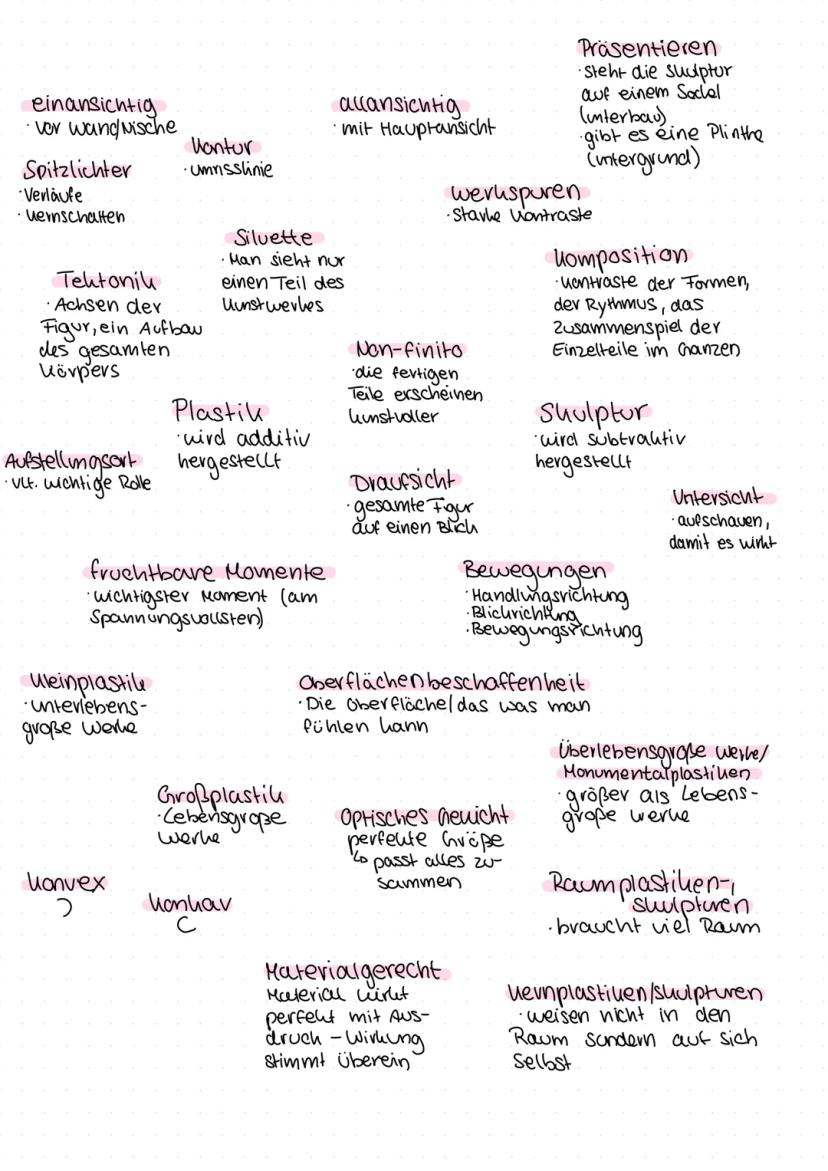 Präsentieren
· steht die Skulptur
auf einem Sockel
(unterbau)
· gibt es eine Plinthe
(untergrund)
einansichtig
· vor Wand/Nische
allansichtig
· mit Hauptansicht
Kontur
· umrisslinie
Spitzlichter
· Verläufe
· Kernschatten
Werkspuren
· Starke Kontraste
Siluette
· Man sieht nur
einen Teil des
Kunstwerkes
Komposition
· Kontraste der Formen,
der Rythmus, das
Zusammenspiel der
Einzelteile im Ganzen
Tektonik
· Achsen der
Figur, ein Aufbau
des gesamten
Körpers
Non-finito
· die fertigen
Teile erscheinen
kunstvoller
Plastik
· wird additiv
hergestellt
Skulptur
· wird subtraktiv
hergestellt
Aufstellungsort
· vlt. wichtige Rolle
Draufsicht
· gesamte Figur
auf einen Blick
Untersicht
· aufschauen,
damit es wirkt
fruchtbare Momente
· wichtigster Moment (am
Spannungsvollsten)
Bewegungen
· Handlungsrichtung
· Blickrichtung
· Bewegungsrichtung
Kleinplastik
· unterlebens-
große Werke
Oberflächenbeschaffenheit
· Die Oberfläche/das was man
fühlen kann
Überlebensgroße Werke/
Monumentalplastiken
· größer als Lebens-
große werke
Großplastik
· Lebensgroße
Werke
Optisches Gewicht
perfekte Größe
↳ passt alles zu-
sammen
konvex
konkav
Raumplastiken-,
skulpturen
· braucht viel Raum
Materialgerecht
Material wirkt
perfekt mit Aus-
druck – Wirkung
stimmt überein
Kernplastiken/skulpturen
· weisen nicht in den
Raum sondern auf sich
Selbst